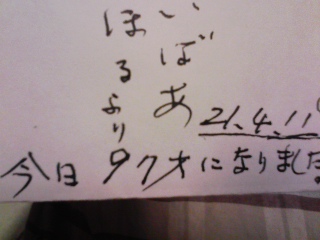 いばあ
ほるより
21.4.11
今日97才になりました。